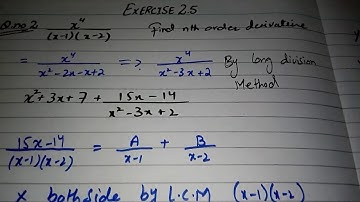 EXERCISE 2.5
Q.no 2 x⁴/(x-1)(x-2) Find nth order derivative
= x⁴/x²-2x-x+2 => x⁴/x²-3x+2 By long division Method
x²+3x+7 + 15x-14/x²-3x+2
15x-14/(x-1)(x-2) = A/x-1 + B/x-2
x both side by L.C.M (x-1)(x-2)